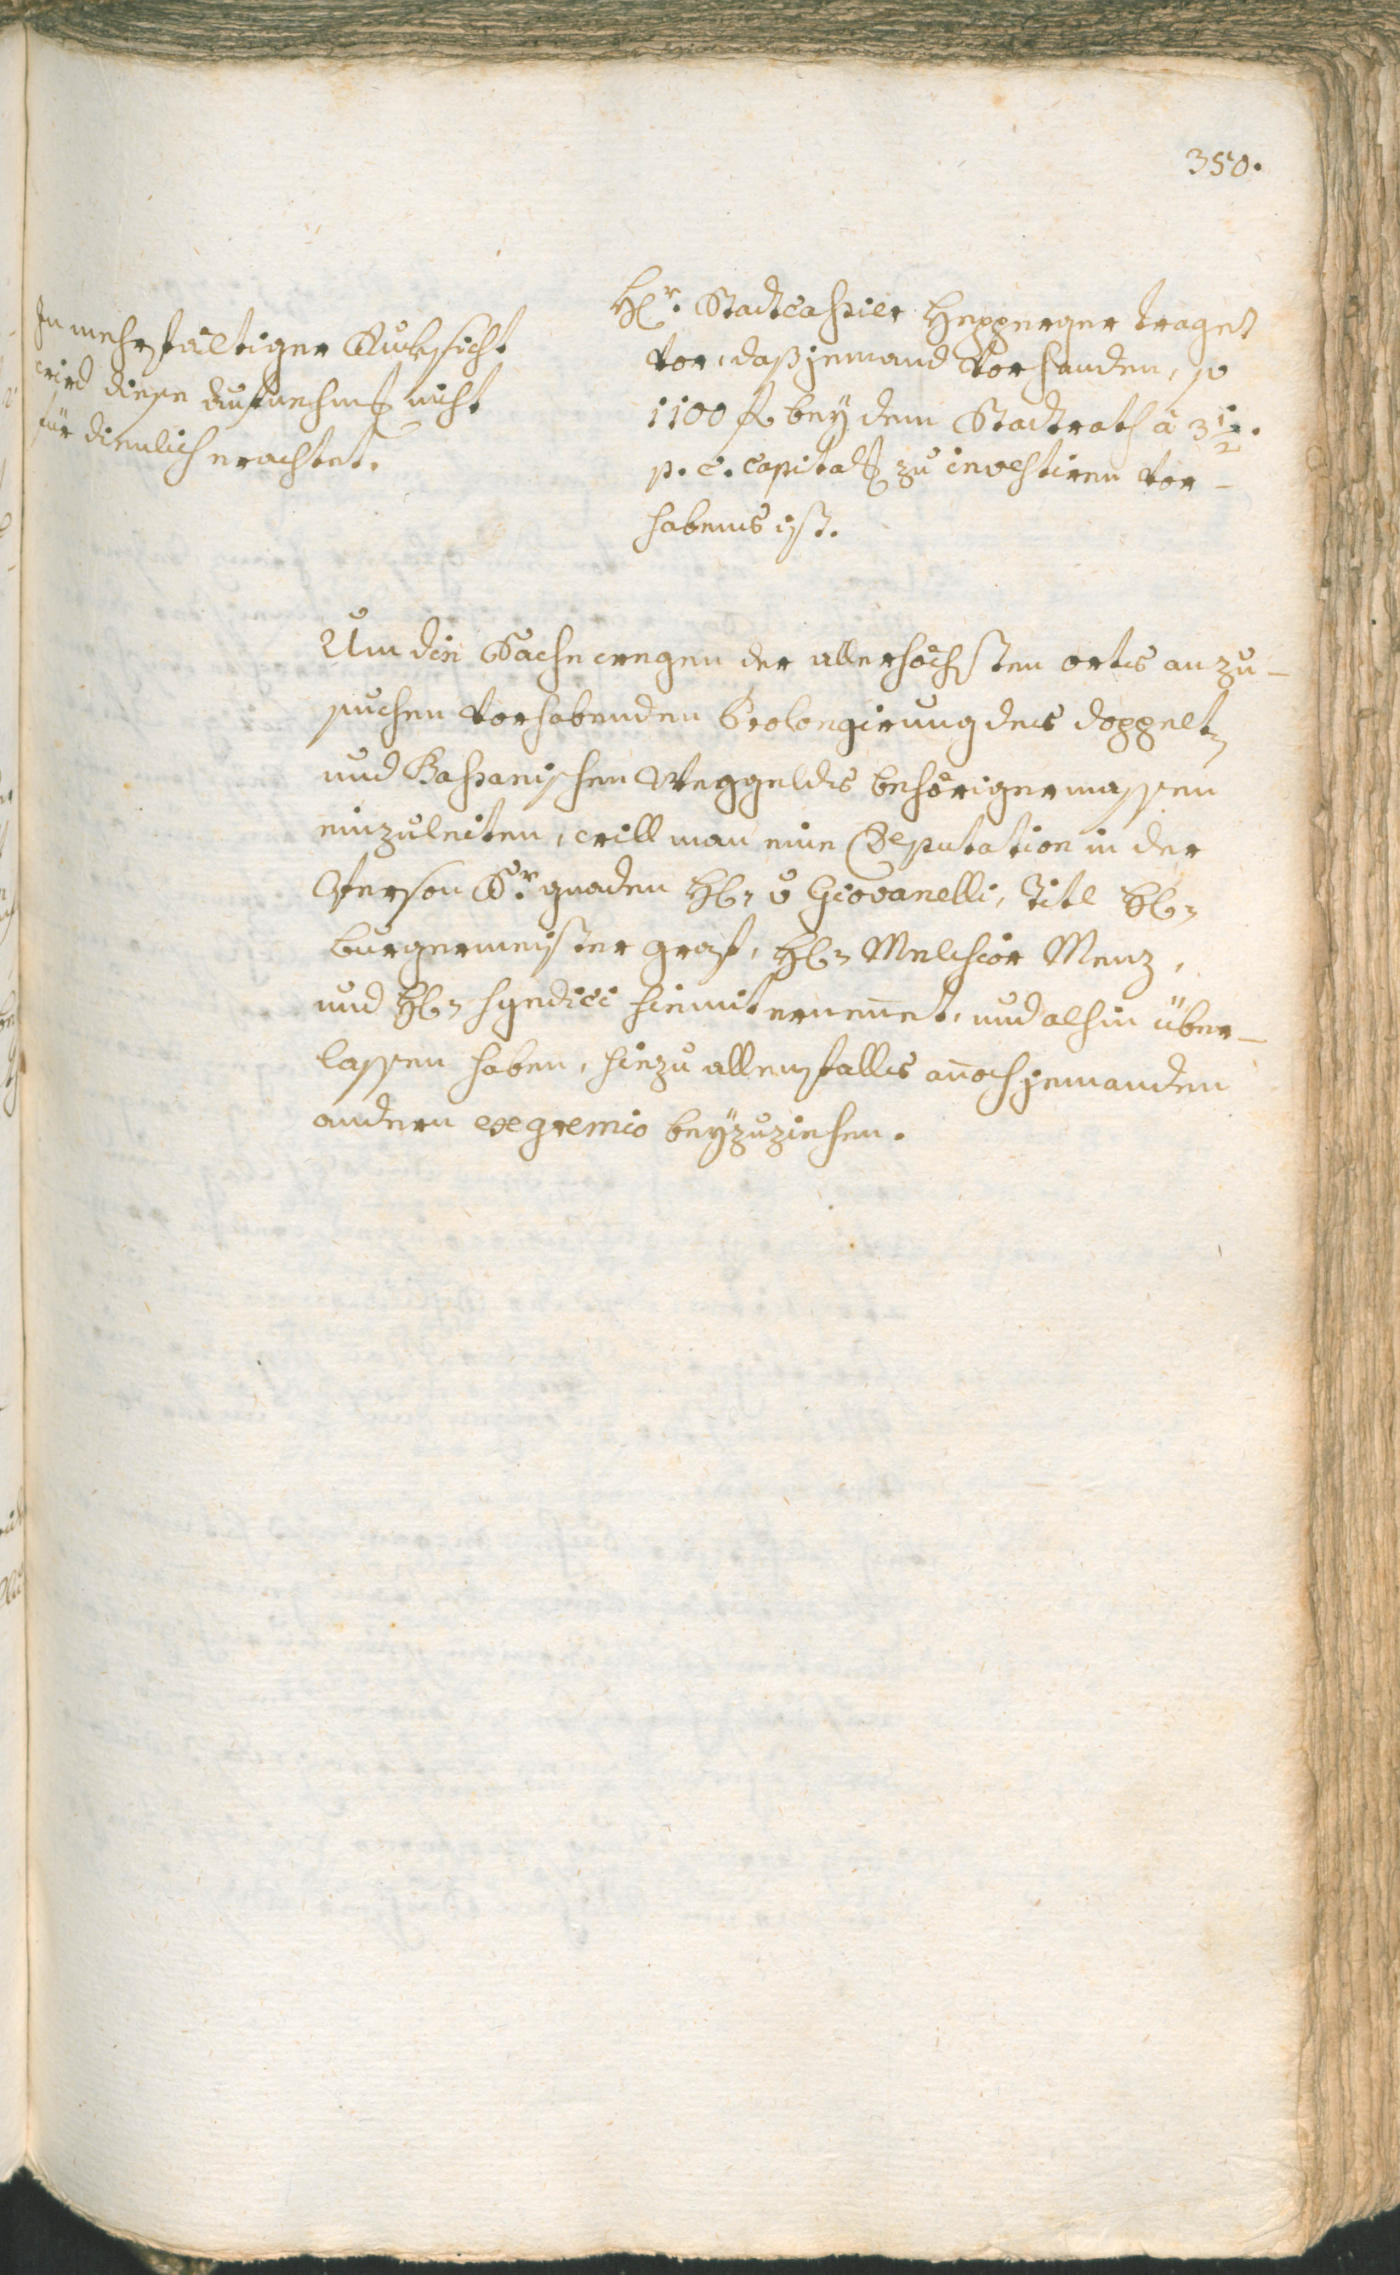 350.
In mehrfältiger Rucksicht
wird diese aufnehmung nicht
für dienlich erachtet.
Hr. Stadtcassier Hepperger traget
vor, daß jemand vorhanden, so
1100 f. bey dem Stadtrath â 3 1/2.
p. c. capitals zu investiren vor-
habens ist.
Um die Sache wegen der allerhöchsten orts anzu-
suchen vorhabenden Prolongirung des doppelt
und Bassanischen Weggeldes behörigermassen
einzuleiten, will man eine Deputation in der
Person Sr. gnaden H. v Giovanelli, Titl H.
burgermeister graf, H. Melchior Menz,
und H. Syndici hiemit ernennet, und alhin über-
lassen haben, hiezu allenfalls annoch jemanden
andern ex gremio beÿzuziehen.